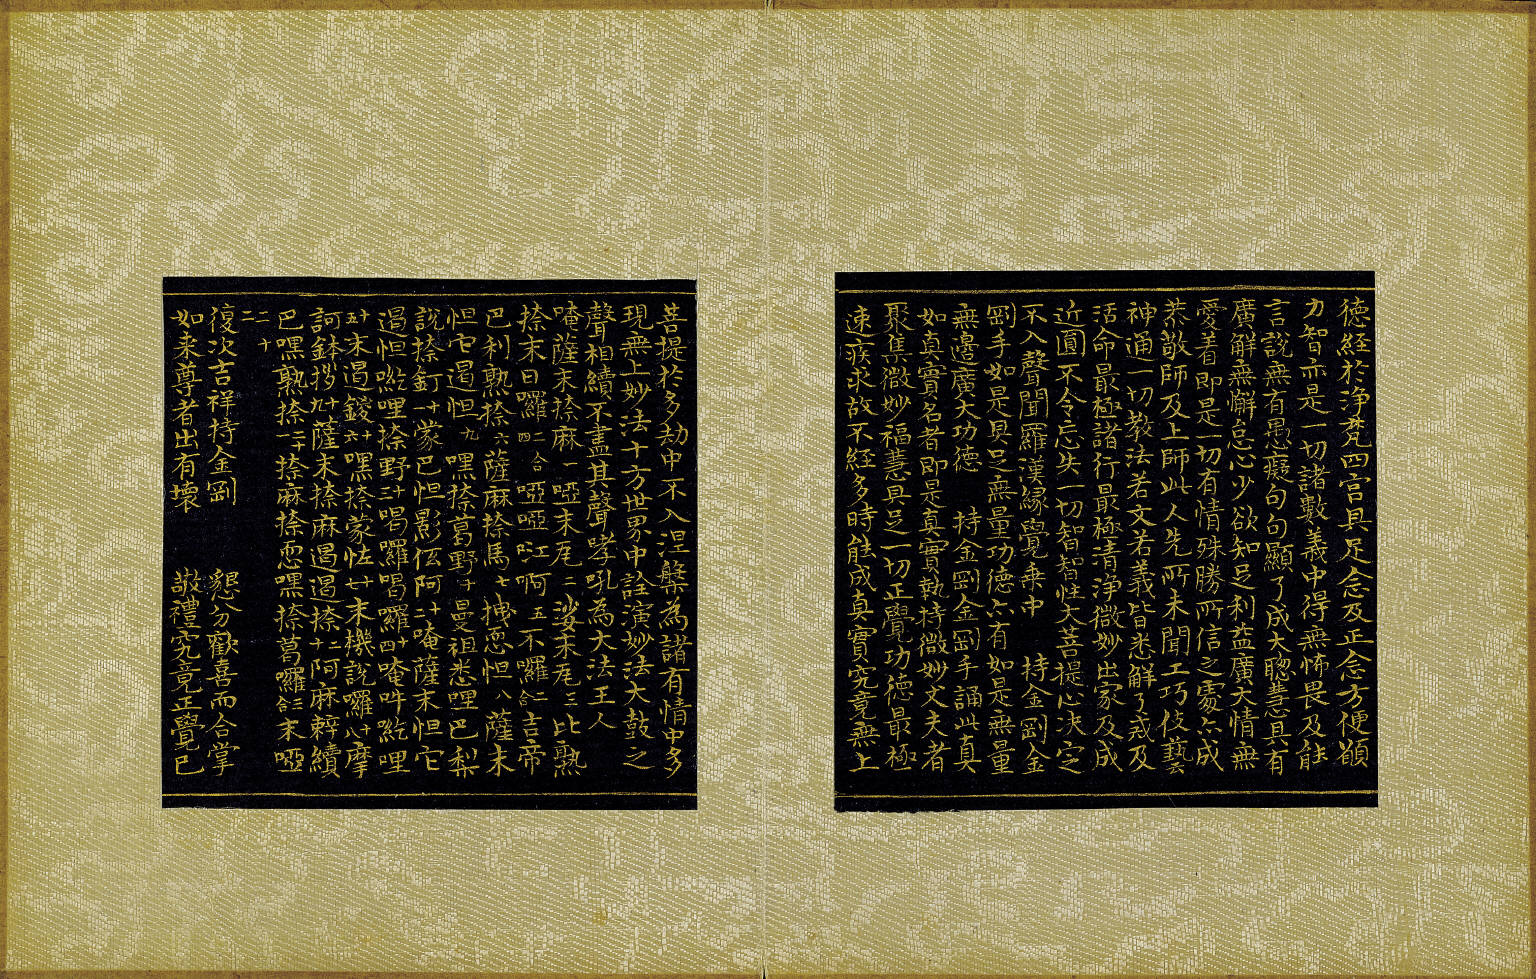 德経於淨梵四宫具足念及正念方便額
力智亦是一切諸數義中得無怖畏及能
言說無有愚癡句句顯了成大聰慧具有
廣解無懈怠心少欲知足利益廣大情無
愛着即是一切有情殊勝所信之處亦成
恭敬師及上師此人先所未聞工巧伎藝
神通一切教法若文若義皆悉解了戒及
活命最極諸行最極清淨微妙出家及成
近圓不令忘失一切智智性大菩提心决定
不入聲聞羅漢緣覺乗中　持金剛金
剛手如是具足無量功德亦有如是無量
無邊廣大功德　持金剛金剛手誦此真
如真實名者即是真實執持微妙丈夫者
聚集微妙福慧具足一切正覺功德最極
速疾求故不経多時能成真實究竟無上
菩提於多劫中不入涅槃為諸有情中多
現無上妙法十方世界中詮演妙法大鼓之
聲相續不盡其聲哮吼為大法王人
唵薩末捺麻一啞末𡰱二娑末𡰱三比熟
捺末日囉二合四啞啞江啊五不囉二合吉帝
巴利熟捺六薩麻捺馬七拽恧怛八薩末
怛它遏怛九嘿捺葛野十曼祖悉哩巴梨
說捺釘十一蒙巴怛影伍阿十二唵薩末怛它
遏怛㘕哩捺野十三喝囉喝囉十四唵吽㘕哩
十五末遏鑁十六嘿捺蒙怯十七末機說囉十八摩
訶鉢拶十九薩末捺麻遏遏捺十二阿麻𨐈續
巴嘿熟捺二十捺麻捺恧嘿捺葛囉二合三末啞
二十二
復次吉祥持金剛　懇分歡喜而合掌
如来尊者出有壞　敬禮究竟正覺已